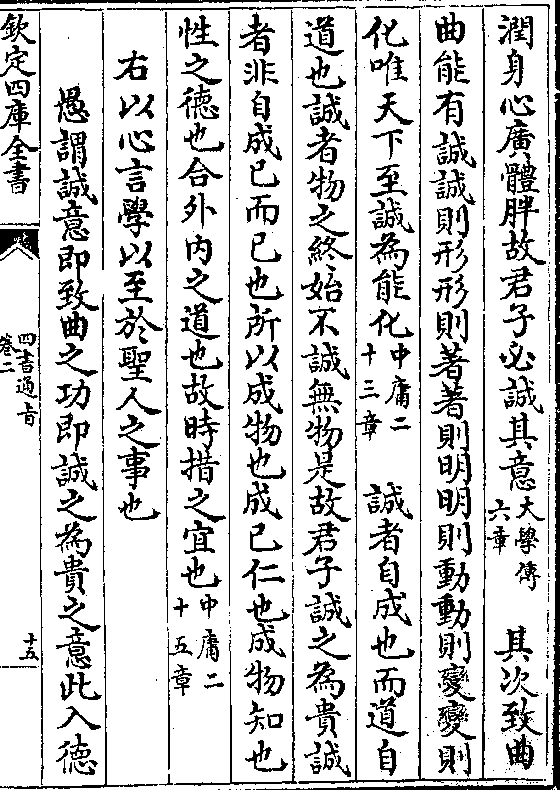 潤身心廣體胖故君子必誠其意大學傳六章　其次致曲
曲能有誠誠則形形則著著則明明則動動則變變則
化唯天下至誠為能化中庸二十三章　誠者自成也而道自
道也誠者物之終始不誠無物是故君子誠之為貴誠
者非自成己而已也所以成物也成己仁也成物知也
性之德也合外內之道也故時措之宜也中庸二十五章
右以心言學以至於聖人之事也
愚謂誠意即致曲之功即誠之為貴之意此入德
欽定四庫全書
四書通旨
卷二
十五